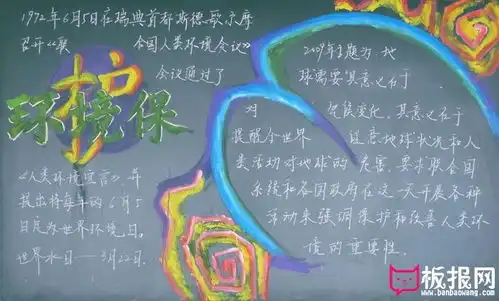 1972年6月5日在瑞典首都斯德歌尔摩
召开《联 合国人类环境会议》
会议通过了
环境保护
《人类环境宣言》, 并
提出将每年的6月5
日定为世界环境日。
世界水日——3月22日.
2009年主题为:地
球需要 其意义在于
对 气候变化, 其意义在于
提醒全世界 注意地球状况和人
类活动对地球的危害. 要求联合国
系统和各国政府在这一天开展各种
活动来强调保护和改善人类环
境的重要性.
板报网
www.banbaowang.com